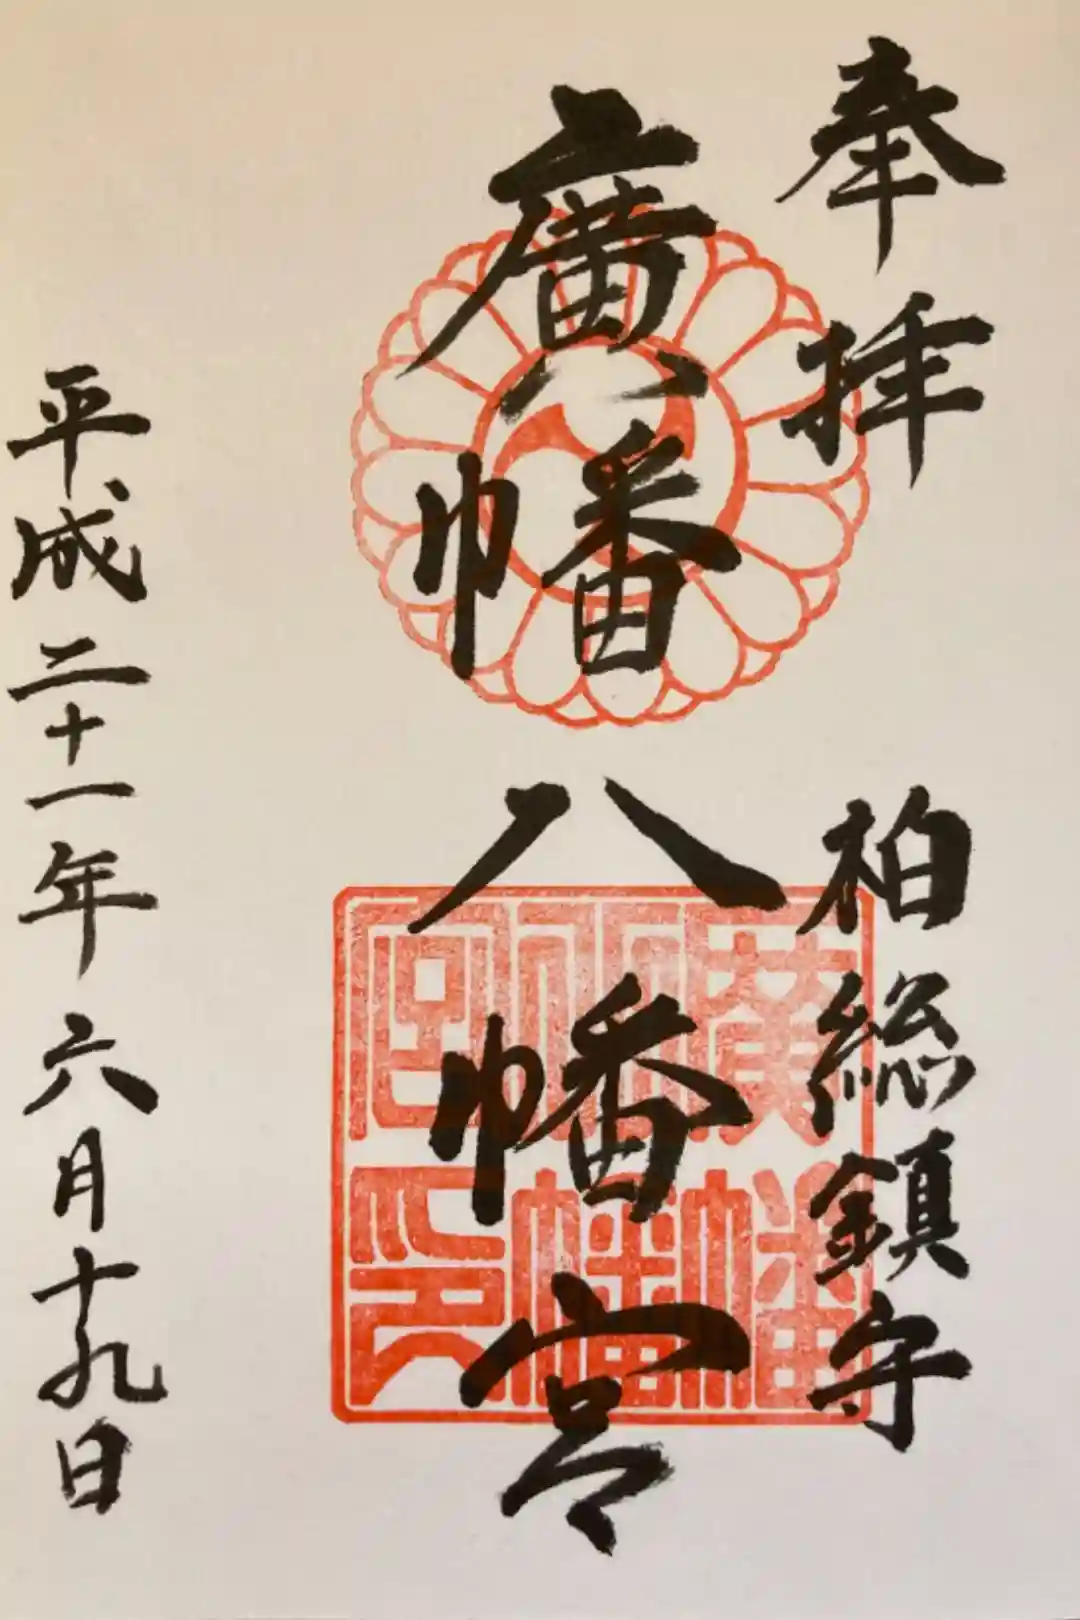 奉拝
柏総鎮守
廣幡八幡宮
廣幡八幡宮印
平成二十一年六月十九日